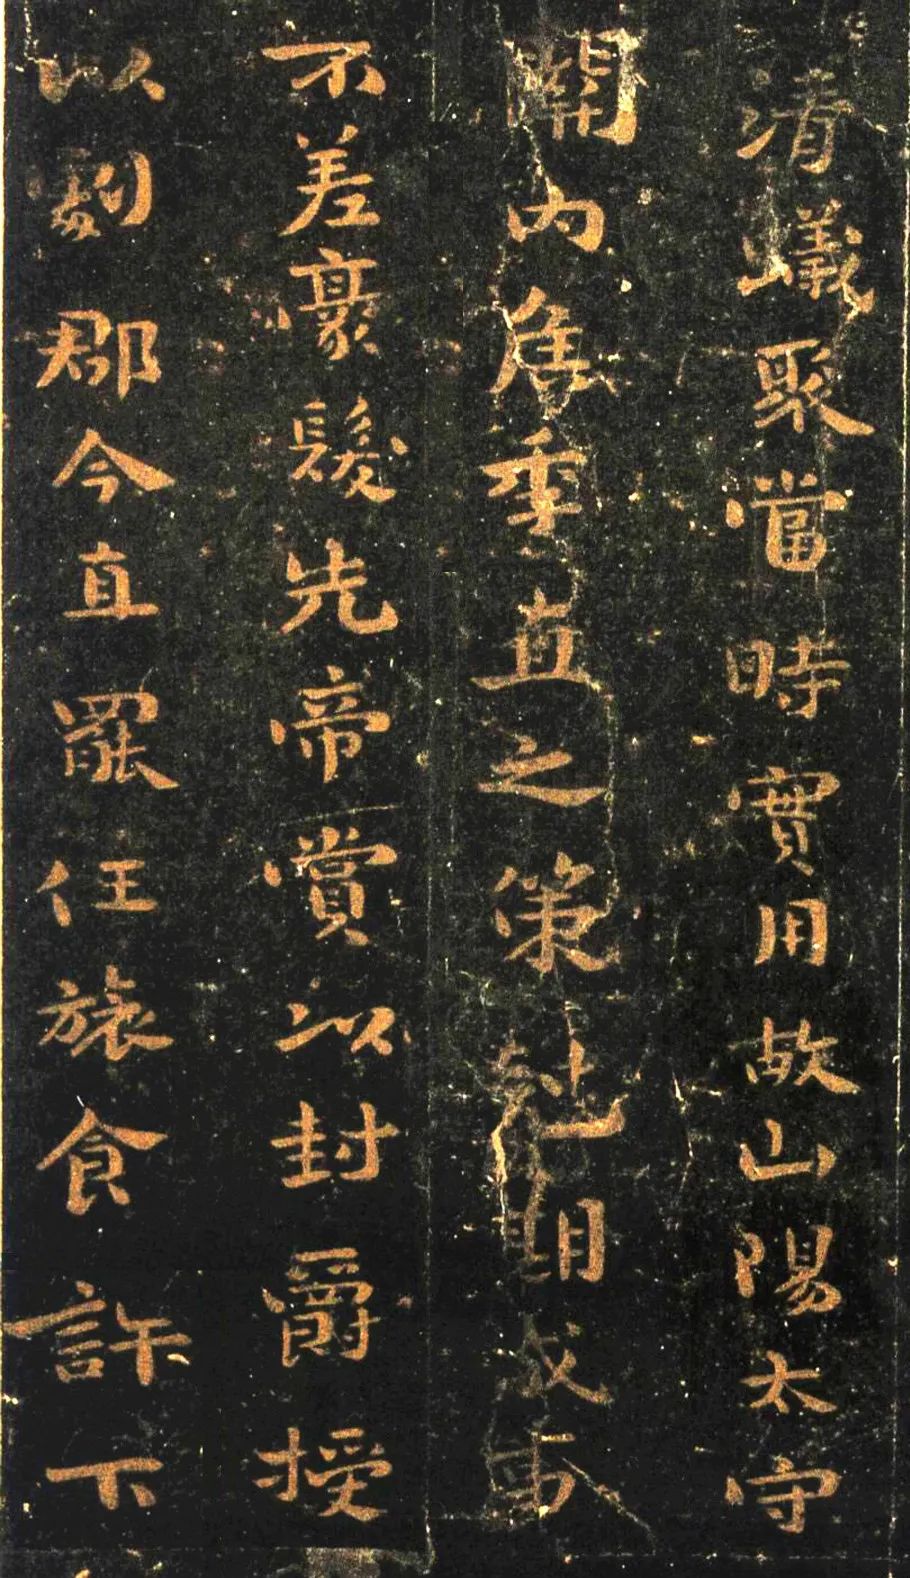 清蟻聚當時實用故山陽太守
關内侯季直之策尅期成事
不差豪髮先帝賞以封爵授
以劇郡今直罷任旅食許下